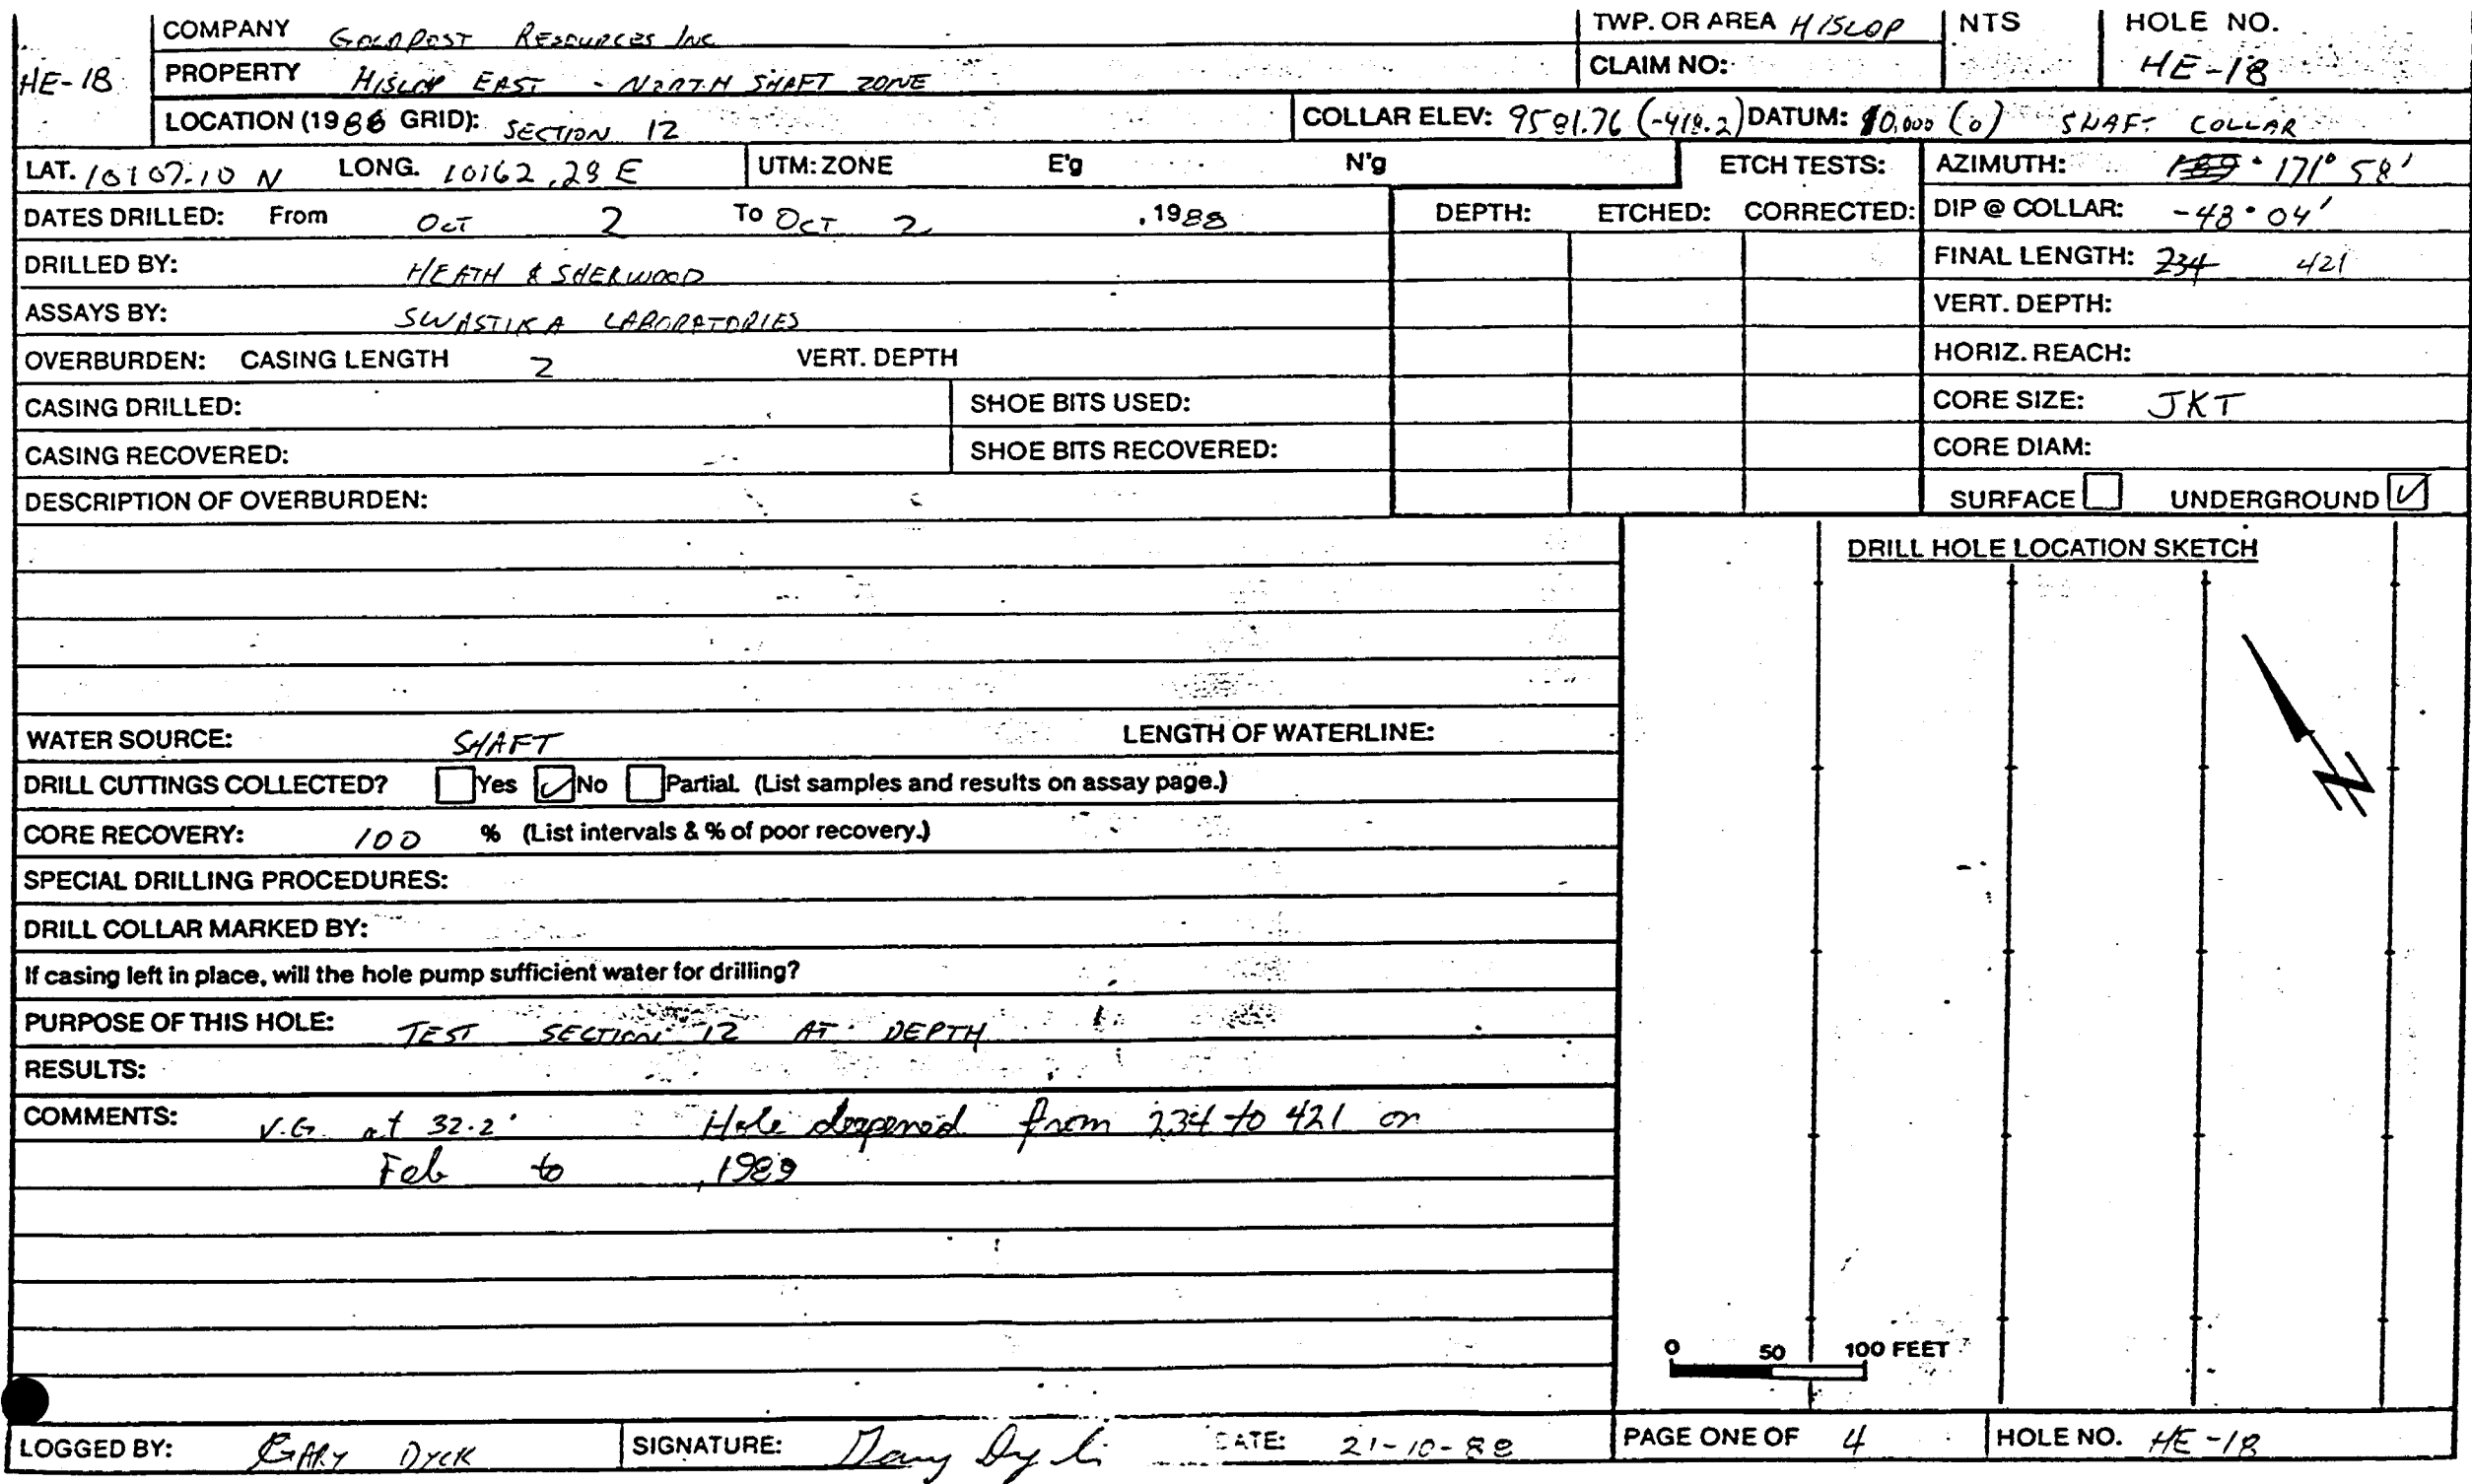 COMPANY GOLDPOST RESOURCES INC TWP. OR AREA HISLOP NTS HOLE NO.
HE-18 PROPERTY HISLOP EAST - NORTH SHAFT ZONE CLAIM NO: HE-18
LOCATION (1986 GRID): SECTION 12 COLLAR ELEV: 9581.76 (-418.2) DATUM: 10,000 (0) SHAFT COLLAR
LAT. 10107.10 N LONG. 10162.28 E UTM: ZONE E'g N'g ETCH TESTS: AZIMUTH: 171° 58'
DATES DRILLED: From OCT 2 To OCT 2 , 1988 DEPTH: ETCHED: CORRECTED: DIP @ COLLAR: -48° 04'
DRILLED BY: HEATH & SHERWOOD FINAL LENGTH: 234 421
ASSAYS BY: SWASTIKA LABORATORIES VERT. DEPTH:
OVERBURDEN: CASING LENGTH 2 VERT. DEPTH HORIZ. REACH:
CASING DRILLED: SHOE BITS USED: CORE SIZE: JKT
CASING RECOVERED: SHOE BITS RECOVERED: CORE DIAM:
DESCRIPTION OF OVERBURDEN: SURFACE UNDERGROUND
DRILL HOLE LOCATION SKETCH
N
WATER SOURCE: SHAFT LENGTH OF WATERLINE:
DRILL CUTTINGS COLLECTED? Yes No Partial. (List samples and results on assay page.)
CORE RECOVERY: 100 % (List intervals & % of poor recovery.)
SPECIAL DRILLING PROCEDURES:
DRILL COLLAR MARKED BY:
If casing left in place, will the hole pump sufficient water for drilling?
PURPOSE OF THIS HOLE: TEST SECTION 12 AT DEPTH
RESULTS:
COMMENTS: V.G. at 32.2' Hole deepened from 234 to 421 on
Feb to , 1989
0 50 100 FEET
LOGGED BY: GARY DYCK SIGNATURE: Gary Dyck DATE: 21-10-88 PAGE ONE OF 4 HOLE NO. HE-18